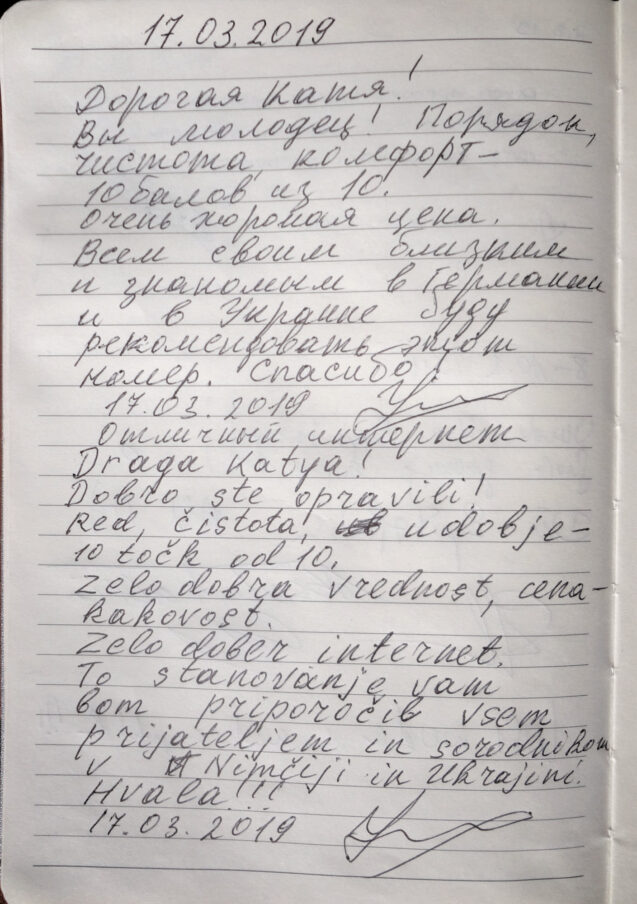 17.03.2019
Дорогая Катя!
Вы молодец! Порядок,
чистота, комфорт –
10 балов из 10.
Очень хорошая цена.
Всем своим близким
и знакомым в Германии
и в Украине буду
рекомендовать этот
номер. Спасибо!
17.03.2019
Отличный интернет
Draga Katya!
Dobro ste opravili!
Red, čistota, udobje –
10 točk od 10.
Zelo dobra vrednost, cena-
kakovost.
Zelo dober internet.
To stanovanje vam
bom priporočil vsem
prijateljem in sorodnikom
v Nimčiji in Ukrajini.
Hvala!!!
17.03.2019